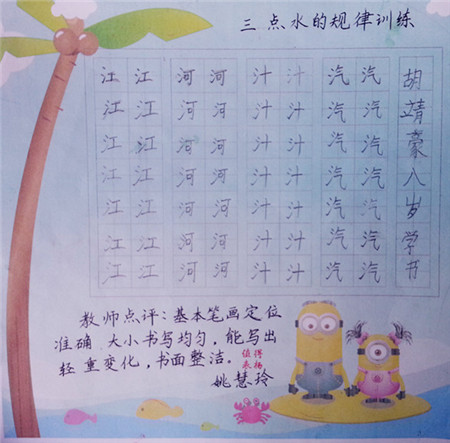 三点水的规律训练
江 江 河 河 汁 汁 汽 汽
江 江 河 河 汁 汁 汽 汽
江 江 河 河 汁 汁 汽 汽
江 江 河 河 汁 汁 汽 汽
江 江 河 河 汁 汁 汽 汽
江 江 河 河 汁 汁 汽 汽
江 江 河 河 汁 汁 汽 汽
胡靖豪八岁学书
教师点评:基本笔画定位
准确 大小书写均匀,能写出
轻重变化,书面整洁。
值得
表扬
姚慧玲